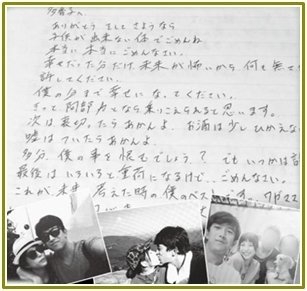 多香子へ
ありがとう そして さようなら
子供が出来ない体でごめんね
本当に本当にごめんなさい。
幸せだった分だけ、未来が怖いから 何も無く
許してください。
僕の分まで幸せになってください。
きっと 阿部力となら乗りこえられると思います。
次は 裏切ったらあかんよ。お酒は少しひかえな
嘘はついたらあかんよ。
多分、僕の事を恨むでしょう? でもいつかは許
最後はいろいろと重荷になるけど、ごめんなさい。
これが、未来を考えた時の僕のベストです。